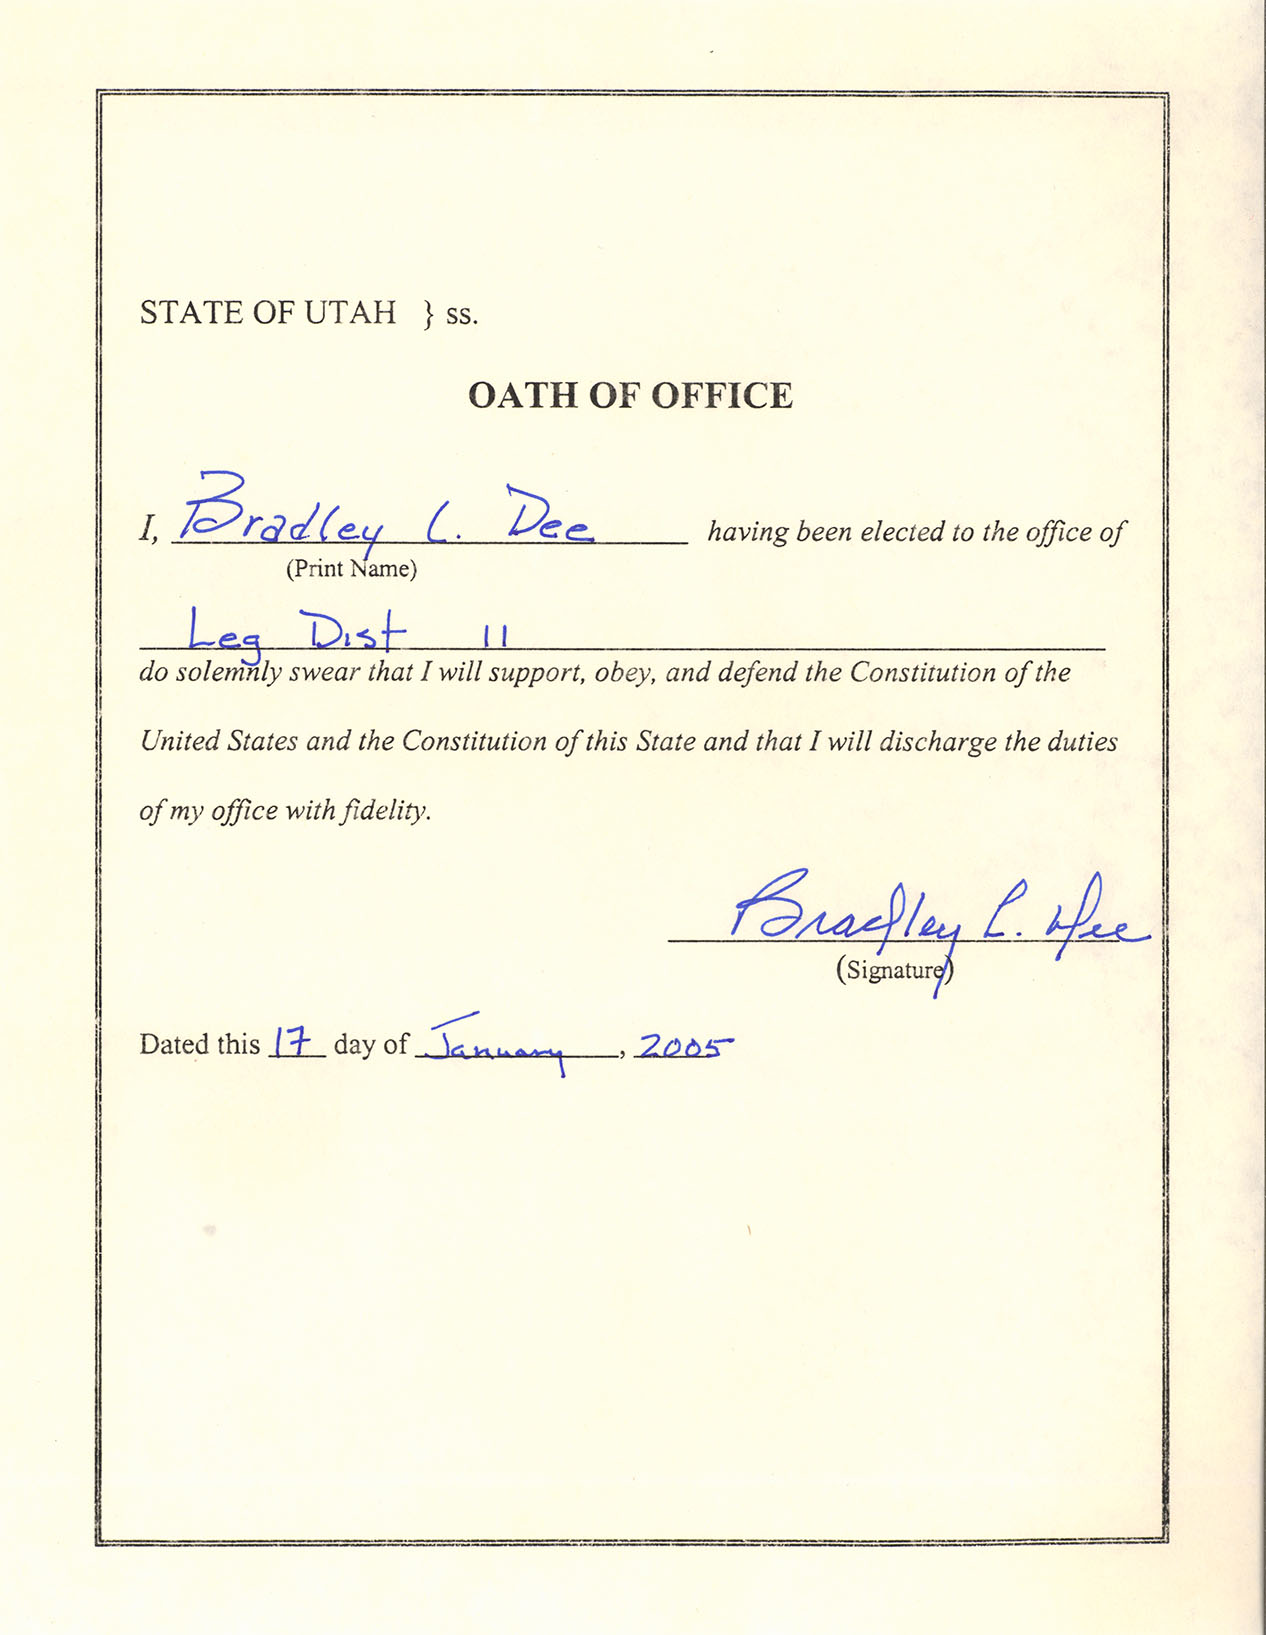 STATE OF UTAH } ss.
OATH OF OFFICE
I, Bradley L. Dee having been elected to the office of
(Print Name)
Leg Dist 11
do solemnly swear that I will support, obey, and defend the Constitution of the
United States and the Constitution of this State and that I will discharge the duties
of my office with fidelity.
Bradley L. Dee
(Signature)
Dated this 17 day of January, 2005